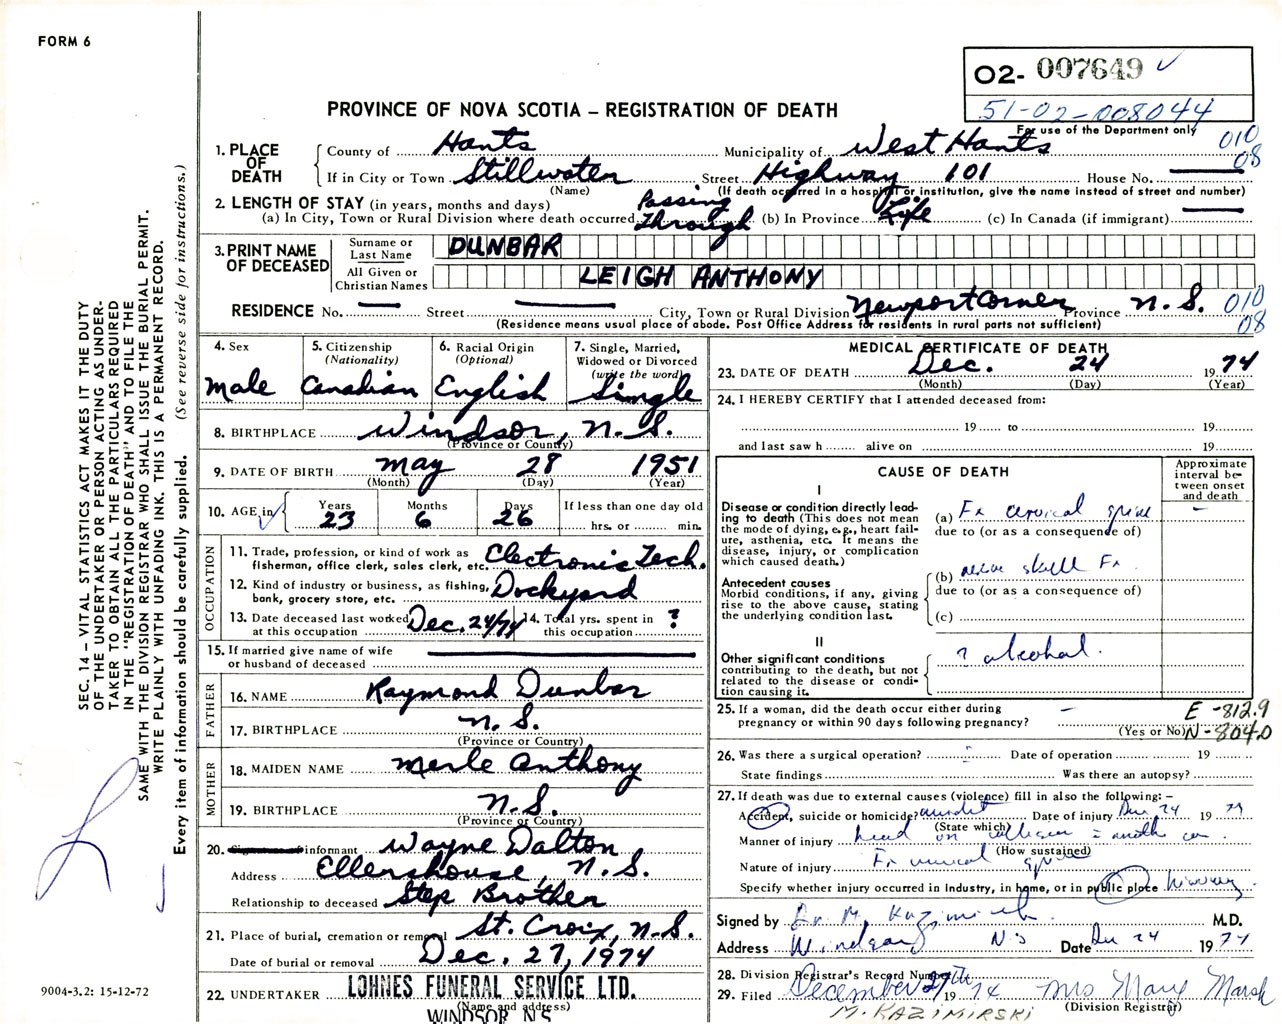 FORM 6
O2- 007649 ✓
51-02-008044
For use of the Department only
PROVINCE OF NOVA SCOTIA – REGISTRATION OF DEATH
010
08
1. PLACE OF DEATH
County of Hants Municipality of West Hants
If in City or Town Stillwater Street Highway 101 House No. —
(Name) (If death occurred in a hospital or institution, give the name instead of street and number)
2. LENGTH OF STAY (in years, months and days)
(a) In City, Town or Rural Division where death occurred Passing Through (b) In Province Life (c) In Canada (if immigrant) —
3. PRINT NAME OF DECEASED
Surname or Last Name DUNBAR
All Given or Christian Names LEIGH ANTHONY
RESIDENCE No. — Street — City, Town or Rural Division Newport Corner Province N.S. 010
08
(Residence means usual place of abode. Post Office Address for residents in rural parts not sufficient)
4. Sex
Male
5. Citizenship
(Nationality)
Canadian
6. Racial Origin
(Optional)
English
7. Single, Married, Widowed or Divorced
(write the word)
Single
8. BIRTHPLACE Windsor, N.S.
(Province or Country)
9. DATE OF BIRTH May 28 1951
(Month) (Day) (Year)
10. AGE in ✓ Years 23 Months 6 Days 26 If less than one day old
hrs. or min.
OCCUPATION
11. Trade, profession, or kind of work as fisherman, office clerk, sales clerk, etc. Electronic Tech.
12. Kind of industry or business, as fishing, bank, grocery store, etc. Dockyard
13. Date deceased last worked at this occupation Dec. 24/74 14. Total yrs. spent in this occupation ?
15. If married give name of wife or husband of deceased —
FATHER
16. NAME Raymond Dunbar
17. BIRTHPLACE N.S.
(Province or Country)
MOTHER
18. MAIDEN NAME Merle Anthony
19. BIRTHPLACE N.S.
(Province or Country)
20. informant Wayne Dalton
Address Ellershouse, N.S.
Relationship to deceased Step Brother
21. Place of burial, cremation or removal St. Croix, N.S.
Date of burial or removal Dec. 27, 1974
22. UNDERTAKER LOHNES FUNERAL SERVICE LTD.
(Name and address)
WINDSOR N.S.
MEDICAL CERTIFICATE OF DEATH
23. DATE OF DEATH Dec. 24 1974
(Month) (Day) (Year)
24. I HEREBY CERTIFY that I attended deceased from:
19 to 19
and last saw h alive on 19
CAUSE OF DEATH
Approximate interval between onset and death
I
Disease or condition directly leading to death (This does not mean the mode of dying, e.g., heart failure, asthenia, etc. It means the disease, injury, or complication which caused death.)
(a) Fx cervical spine –
due to (or as a consequence of)
Antecedent causes
Morbid conditions, if any, giving rise to the above cause, stating the underlying condition last.
(b) skull Fx
due to (or as a consequence of)
(c)
II
Other significant conditions contributing to the death, but not related to the disease or condition causing it.
? alcohol.
25. If a woman, did the death occur either during pregnancy or within 90 days following pregnancy? –
(Yes or No)
E - 812.9
N - 804.0
26. Was there a surgical operation? - Date of operation 19
State findings Was there an autopsy?
27. If death was due to external causes (violence) fill in also the following: –
Accident, suicide or homicide? accident Date of injury Dec 24 1974
(State which)
Manner of injury head on collision = another car.
(How sustained)
Nature of injury Fx cervical spine
Specify whether injury occurred in industry, in home, or in public place highway
Signed by Dr. M. Kazimirski M.D.
Address Windsor NS Date Dec 24 1974
28. Division Registrar's Record Number
29. Filed December 27th 1974 Mrs Mary Marsh
(Division Registrar)
M. KAZIMIRSKI
SEC. 14 – VITAL STATISTICS ACT MAKES IT THE DUTY
OF THE UNDERTAKER OR PERSON ACTING AS UNDER-
TAKER TO OBTAIN ALL THE PARTICULARS REQUIRED
IN THE "REGISTRATION OF DEATH" AND TO FILE THE
SAME WITH THE DIVISION REGISTRAR WHO SHALL ISSUE THE BURIAL PERMIT.
WRITE PLAINLY WITH UNFADING INK. THIS IS A PERMANENT RECORD.
Every item of information should be carefully supplied. (See reverse side for instructions.)
9004-3.2: 15-12-72